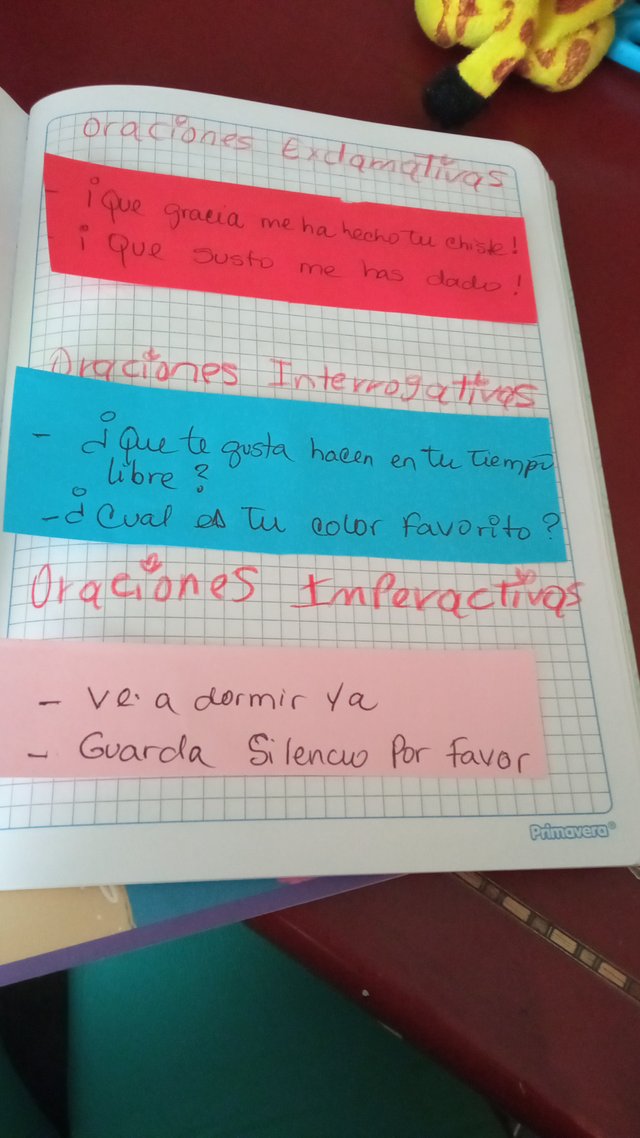 Oraciones Exclamativas
- ¡Que gracia me ha hecho tu chiste!
- ¡ Que susto me has dado!
Oraciones Interrogativas
- ¿Que te gusta hacen en tu tiempo
libre?
- ¿Cual es tu color favorito?
Oraciones Imperactivas
- Ve a dormir ya
- Guarda Silencio Por favor
Primavera®